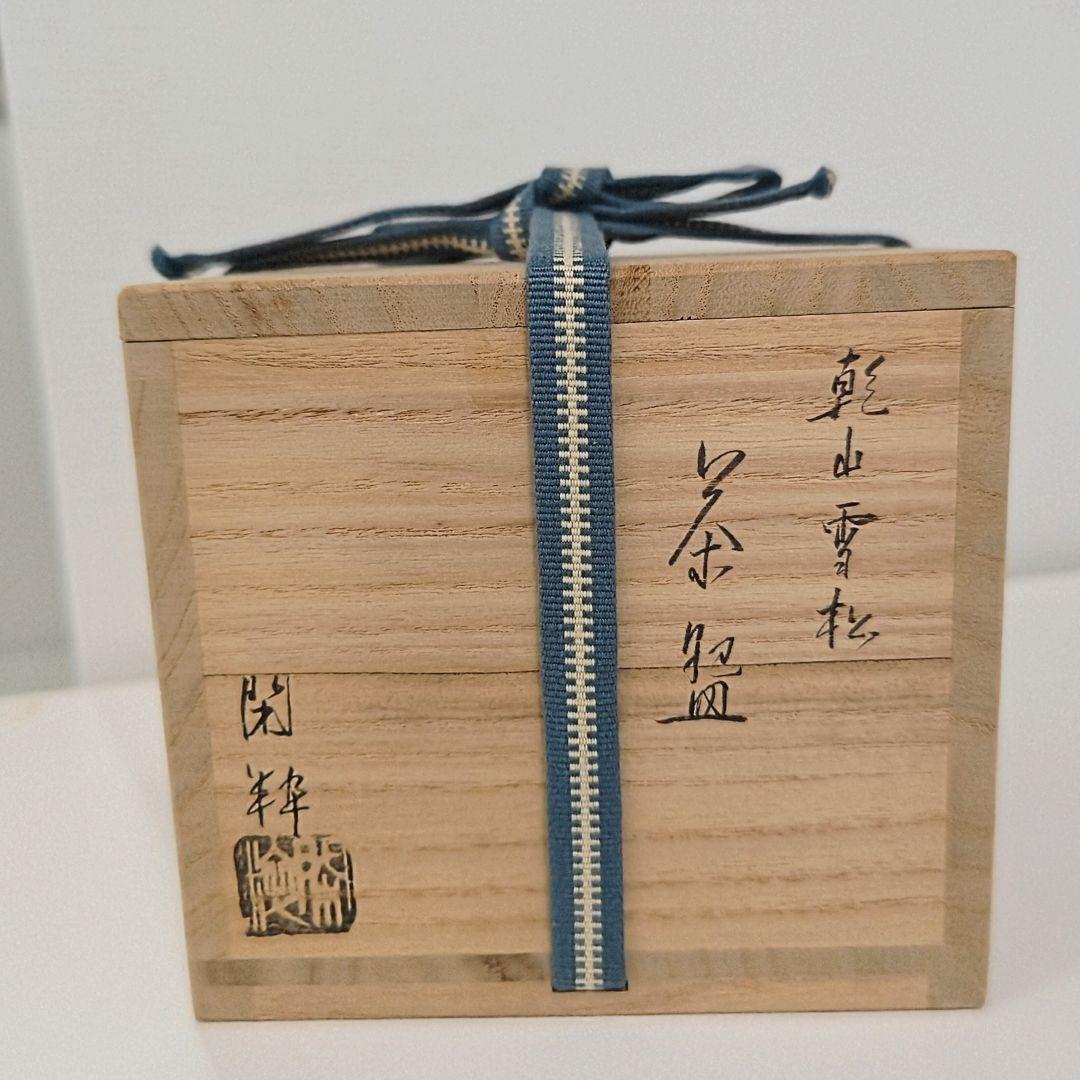 乾山雪松
茶盌
閑粋